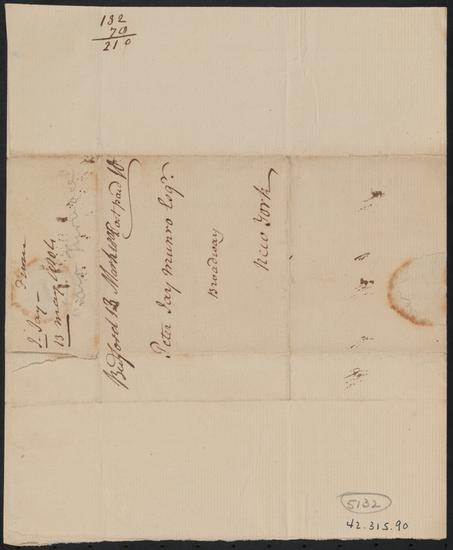 132
70
210
Bedford 13 March Post paid 10
Peter Jay Munro Esqr.
Broadway
New York
From
J. Jay—
13 mar. 1804
5132
42.315.90